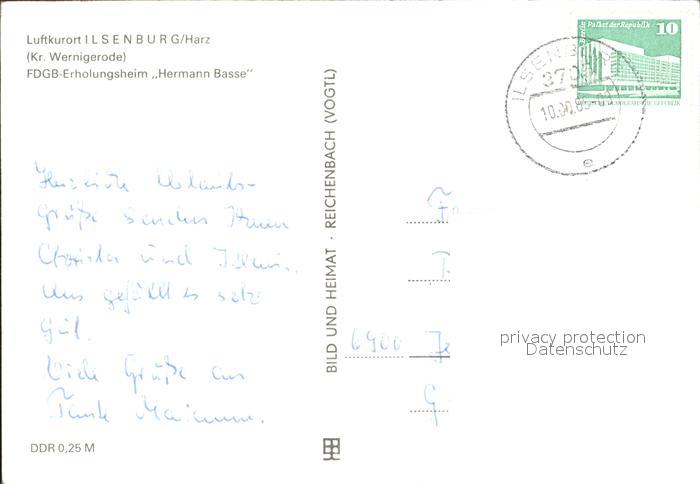 Luftkurort ILSENBURG/Harz
(Kr. Wernigerode)
FDGB-Erholungsheim „Hermann Basse"
Herzliche Urlaubs-
Grüße senden Ihnen
Christa und
Uns gefällt es sehr
gut.
Viele Grüße an
Tante
DDR 0,25 M
BILD UND HEIMAT · REICHENBACH (VOGTL)
Berlin Palast der Republik
10
ILSENBURG
e
6900 Je
G
privacy protection
Datenschutz